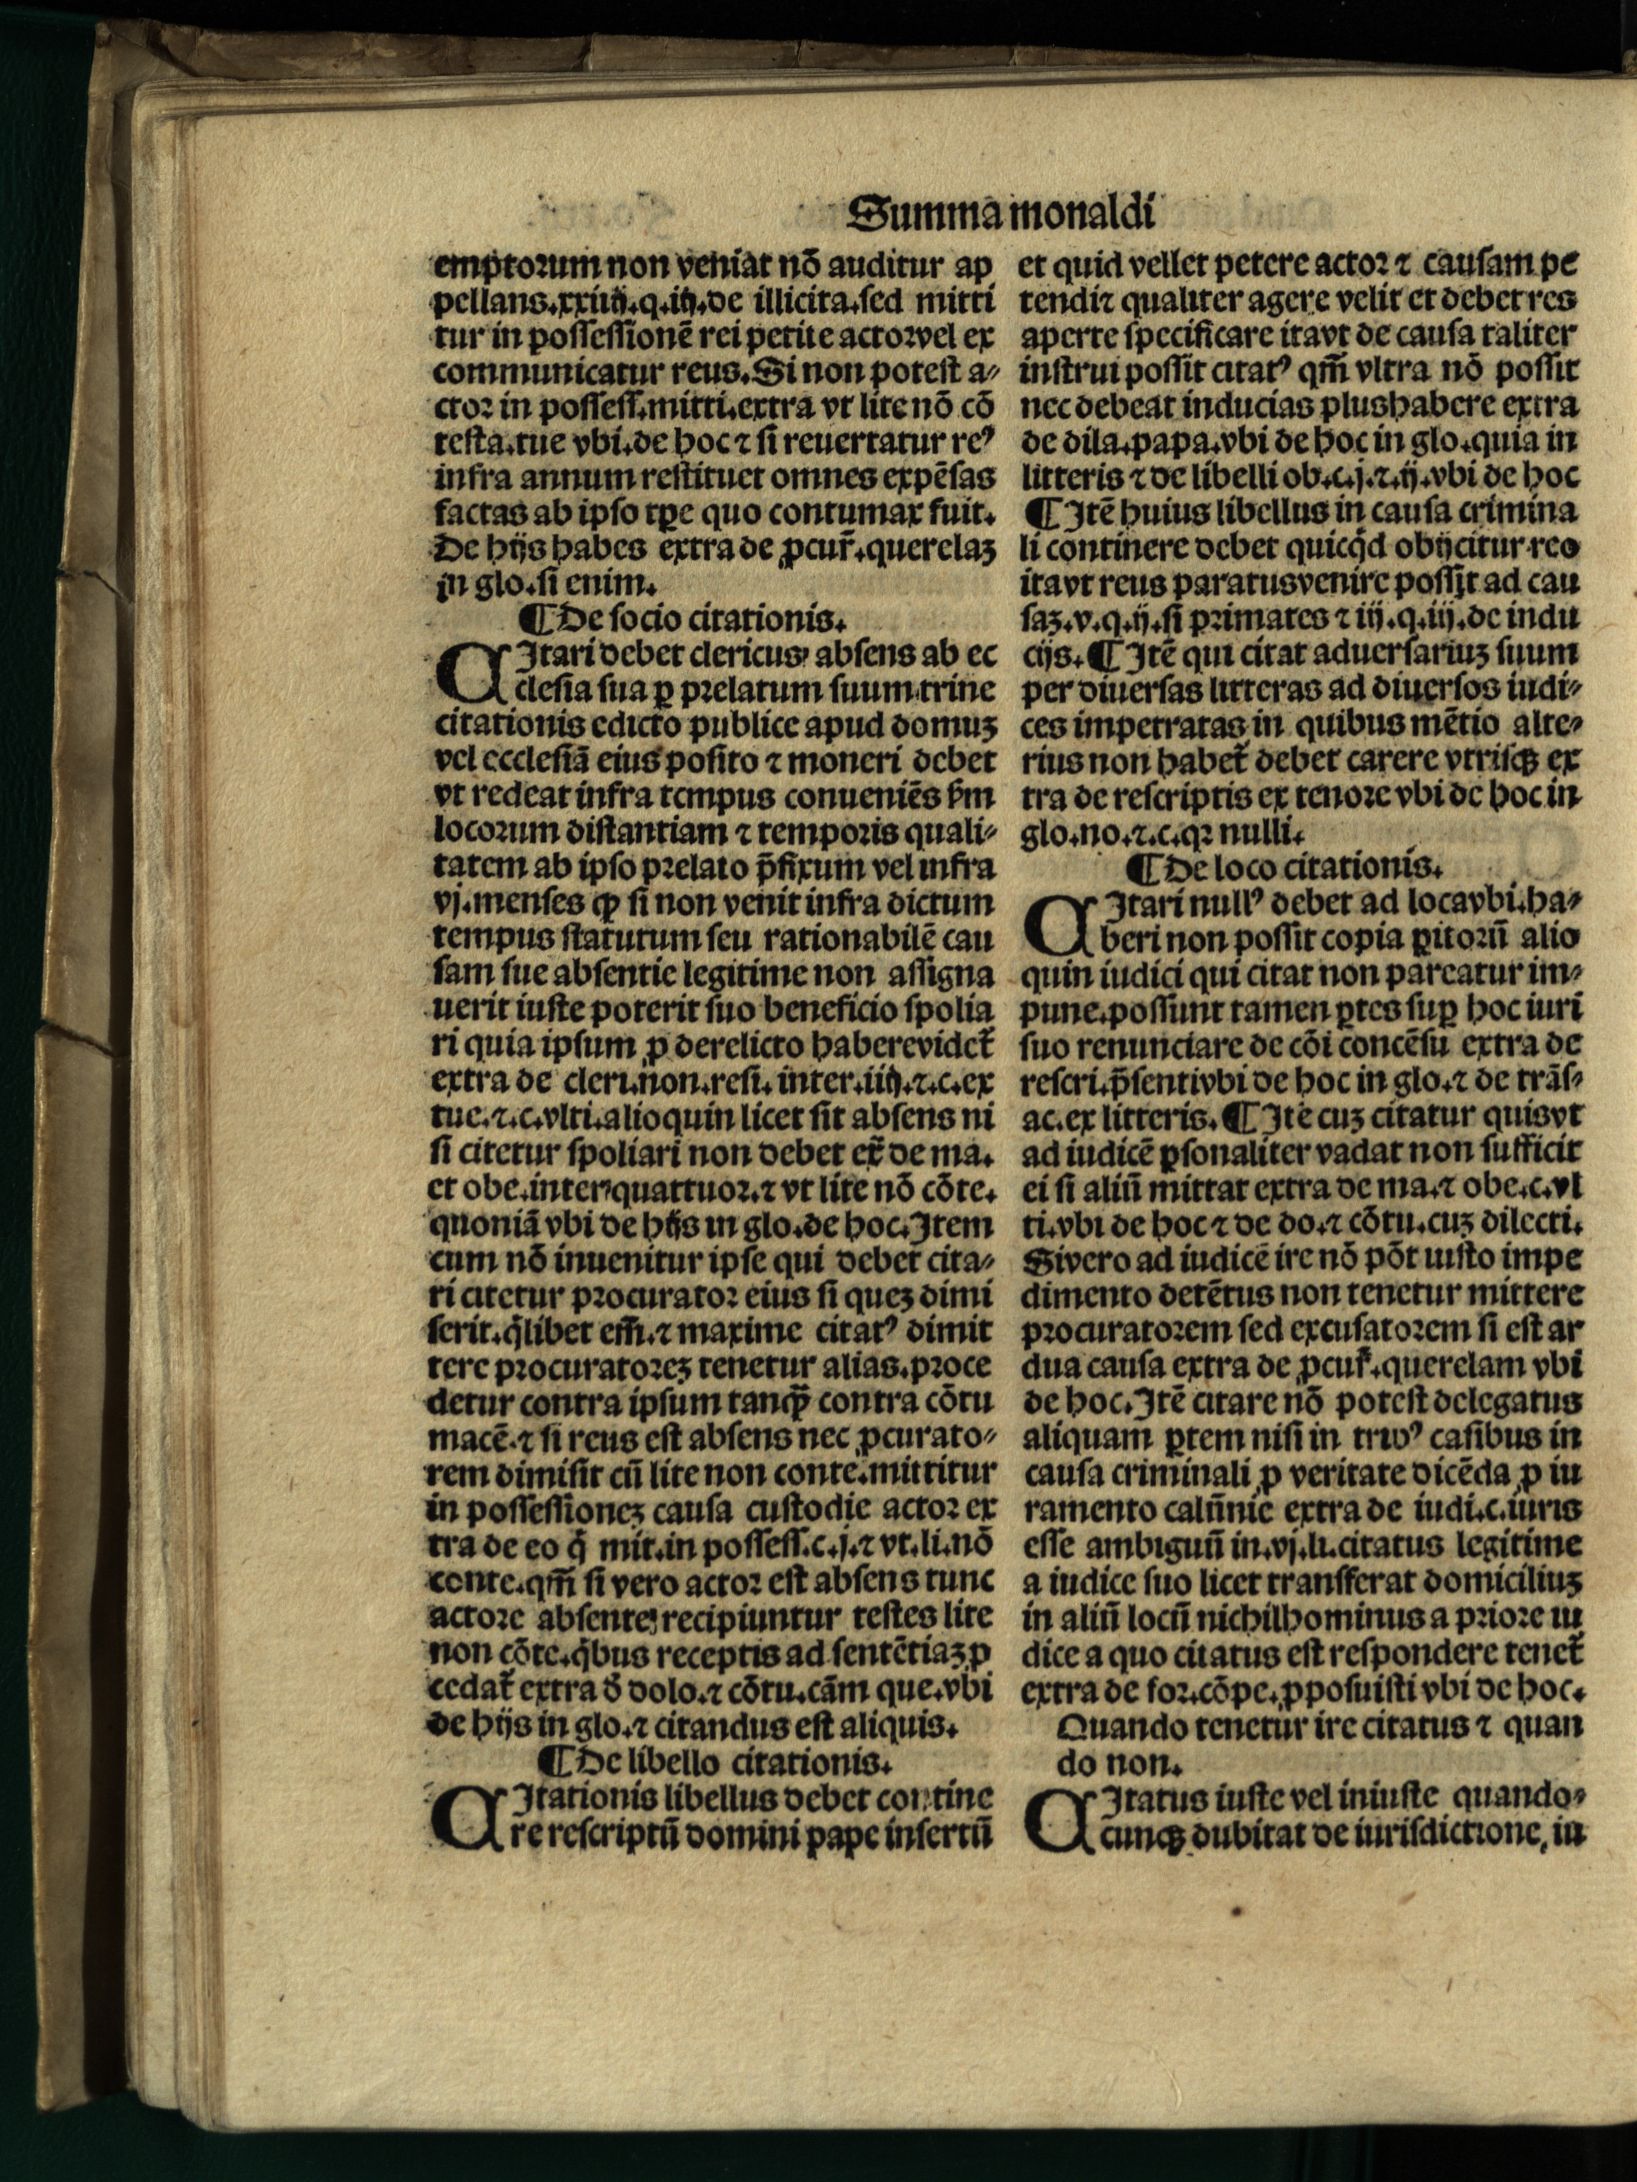 Summa monaldi
emptorum non veniat nō auditur ap
pellans.xxiiij.q.iij.de illicita.sed mitti
tur in possessionē rei petite actor vel ex
communicatur reus.Si non potest a⸗
ctor in possess.mitti.extra vt lite nō cō
testa.tue vbi.de hoc ⁊ si reuertatur reꝰ
infra annum restituet omnes expēsas
factas ab ipso tꝑe quo contumax fuit.
De hijs habes extra de ꝓcur̄.querelaꝫ
in glo.si enim.
¶De socio citationis.
CItari debet clericus absens ab ec
clesia sua ꝑ prelatum suum trine
citationis edicto publice apud domuꝫ
vel ecclesiā eius posito ⁊ moneri debet
vt redeat infra tempus conueniēs ẜm
locorum distantiam ⁊ temporis quali⸗
tatem ab ipso prelato p̄fixum vel infra
vj.menses ꝙ si non venit infra dictum
tempus statutum seu rationabilē cau
sam sue absentie legitime non assigna
uerit iuste poterit suo beneficio spolia
ri quia ipsum ꝓ derelicto haberevidet᷑
extra de cleri.non.resi.inter.iiij.⁊.c.ex
tue.⁊.c.vlti.alioquin licet sit absens ni
si citetur spoliari non debet ex̄ de ma.
et obe.inter quattuor.⁊ vt lite nō cōte.
quoniā vbi de hijs in glo.de hoc.Item
cum nō inuenitur ipse qui debet cita⸗
ri citetur procurator eius si queꝫ dimi
serit.q̄libet em̄.⁊ maxime citatꝰ dimit
tere procuratoreꝫ tenetur alias.proce
detur contra ipsum tanꝙ̄ contra cōtu
macē.⁊ si reus est absens nec ꝓcurato⸗
rem dimisit cū lite non conte.mittitur
in possessioneꝫ causa custodie actor ex
tra de eo q̇ mit.in possess.c.j.⁊ vt.li.nō
conte.qm̄ si vero actor est absens tunc
actore absente recipiuntur testes lite
non cōte.q̇bus receptis ad sentētiaꝫ ꝓ
cedat᷑ extra ð dolo.⁊ cōtu.cām que.vbi
de hijs in glo.⁊ citandus est aliquis.
¶De libello citationis.
CItationis libellus debet contine
re rescriptū domini pape insertū
et quid vellet petere actor ⁊ causam pe
tendi⁊ qualiter agere velit et debet res
aperte specificare itavt de causa taliter
instrui possit citatꝰ qm̄ vltra nō possit
nec debeat inducias plushabere extra
de dila.papa.vbi de hoc in glo.quia in
litteris ⁊ de libelli ob.c.j.⁊.ij.vbi de hoc
¶Itē huius libellus in causa crimina
li continere debet quicq̇d obijcitur reo
itavt reus paratusvenire possit ad cau
saꝫ.v.q.ij.si primates ⁊ iij.q.iij.de indu
cijs.¶Itē qui citat aduersariuꝫ suum
per diuersas litteras ad diuersos iudi⸗
ces impetratas in quibus mētio alte⸗
rius non habet᷑ debet carere vtrisqꝫ ex
tra de rescriptis ex tenore vbi de hoc in
glo.no.⁊.c.qꝛ nulli.
¶De loco citationis.
CItari nullꝰ debet ad locavbi.ha⸗
beri non possit copia ꝑitorū alio
quin iudici qui citat non pareatur im⸗
pune.possunt tamen ꝑtes suꝑ hoc iuri
suo renunciare de cōi concēsu extra de
rescri.p̄sentivbi de hoc in glo.⁊ de trās⸗
ac.ex litteris.¶Itē cuꝫ citatur quisvt
ad iudicē ꝑsonaliter vadat non sufficit
ei si aliū mittat extra de ma.⁊ obe.c.vl
ti.vbi de hoc ⁊ de do.⁊ cōtu.cuꝫ dilecti.
Sivero ad iudicē ire nō pōt iusto impe
dimento detētus non tenetur mittere
procuratorem sed excusatorem si est ar
dua causa extra de ꝓcur̄.querelam vbi
de hoc.Itē citare nō potest delegatus
aliquam ꝑtem nisi in tribꝰ casibus in
causa criminali ꝓ veritate dicēda ꝓ iu
ramento calūnie extra de iudi.c.iuris
esse ambiguū in.vj.li.citatus legitime
a iudice suo licet transferat domiciliuꝫ
in aliū locū nichilhominus a priore iu
dice a quo citatus est respondere tenet᷑
extra de for.cōpe.ꝓposuisti vbi de hoc.
Quando tenetur ire citatus ⁊ quan
do non.
CItatus iuste vel iniuste quando⸗
cunqꝫ dubitat de iurisdictione, iu